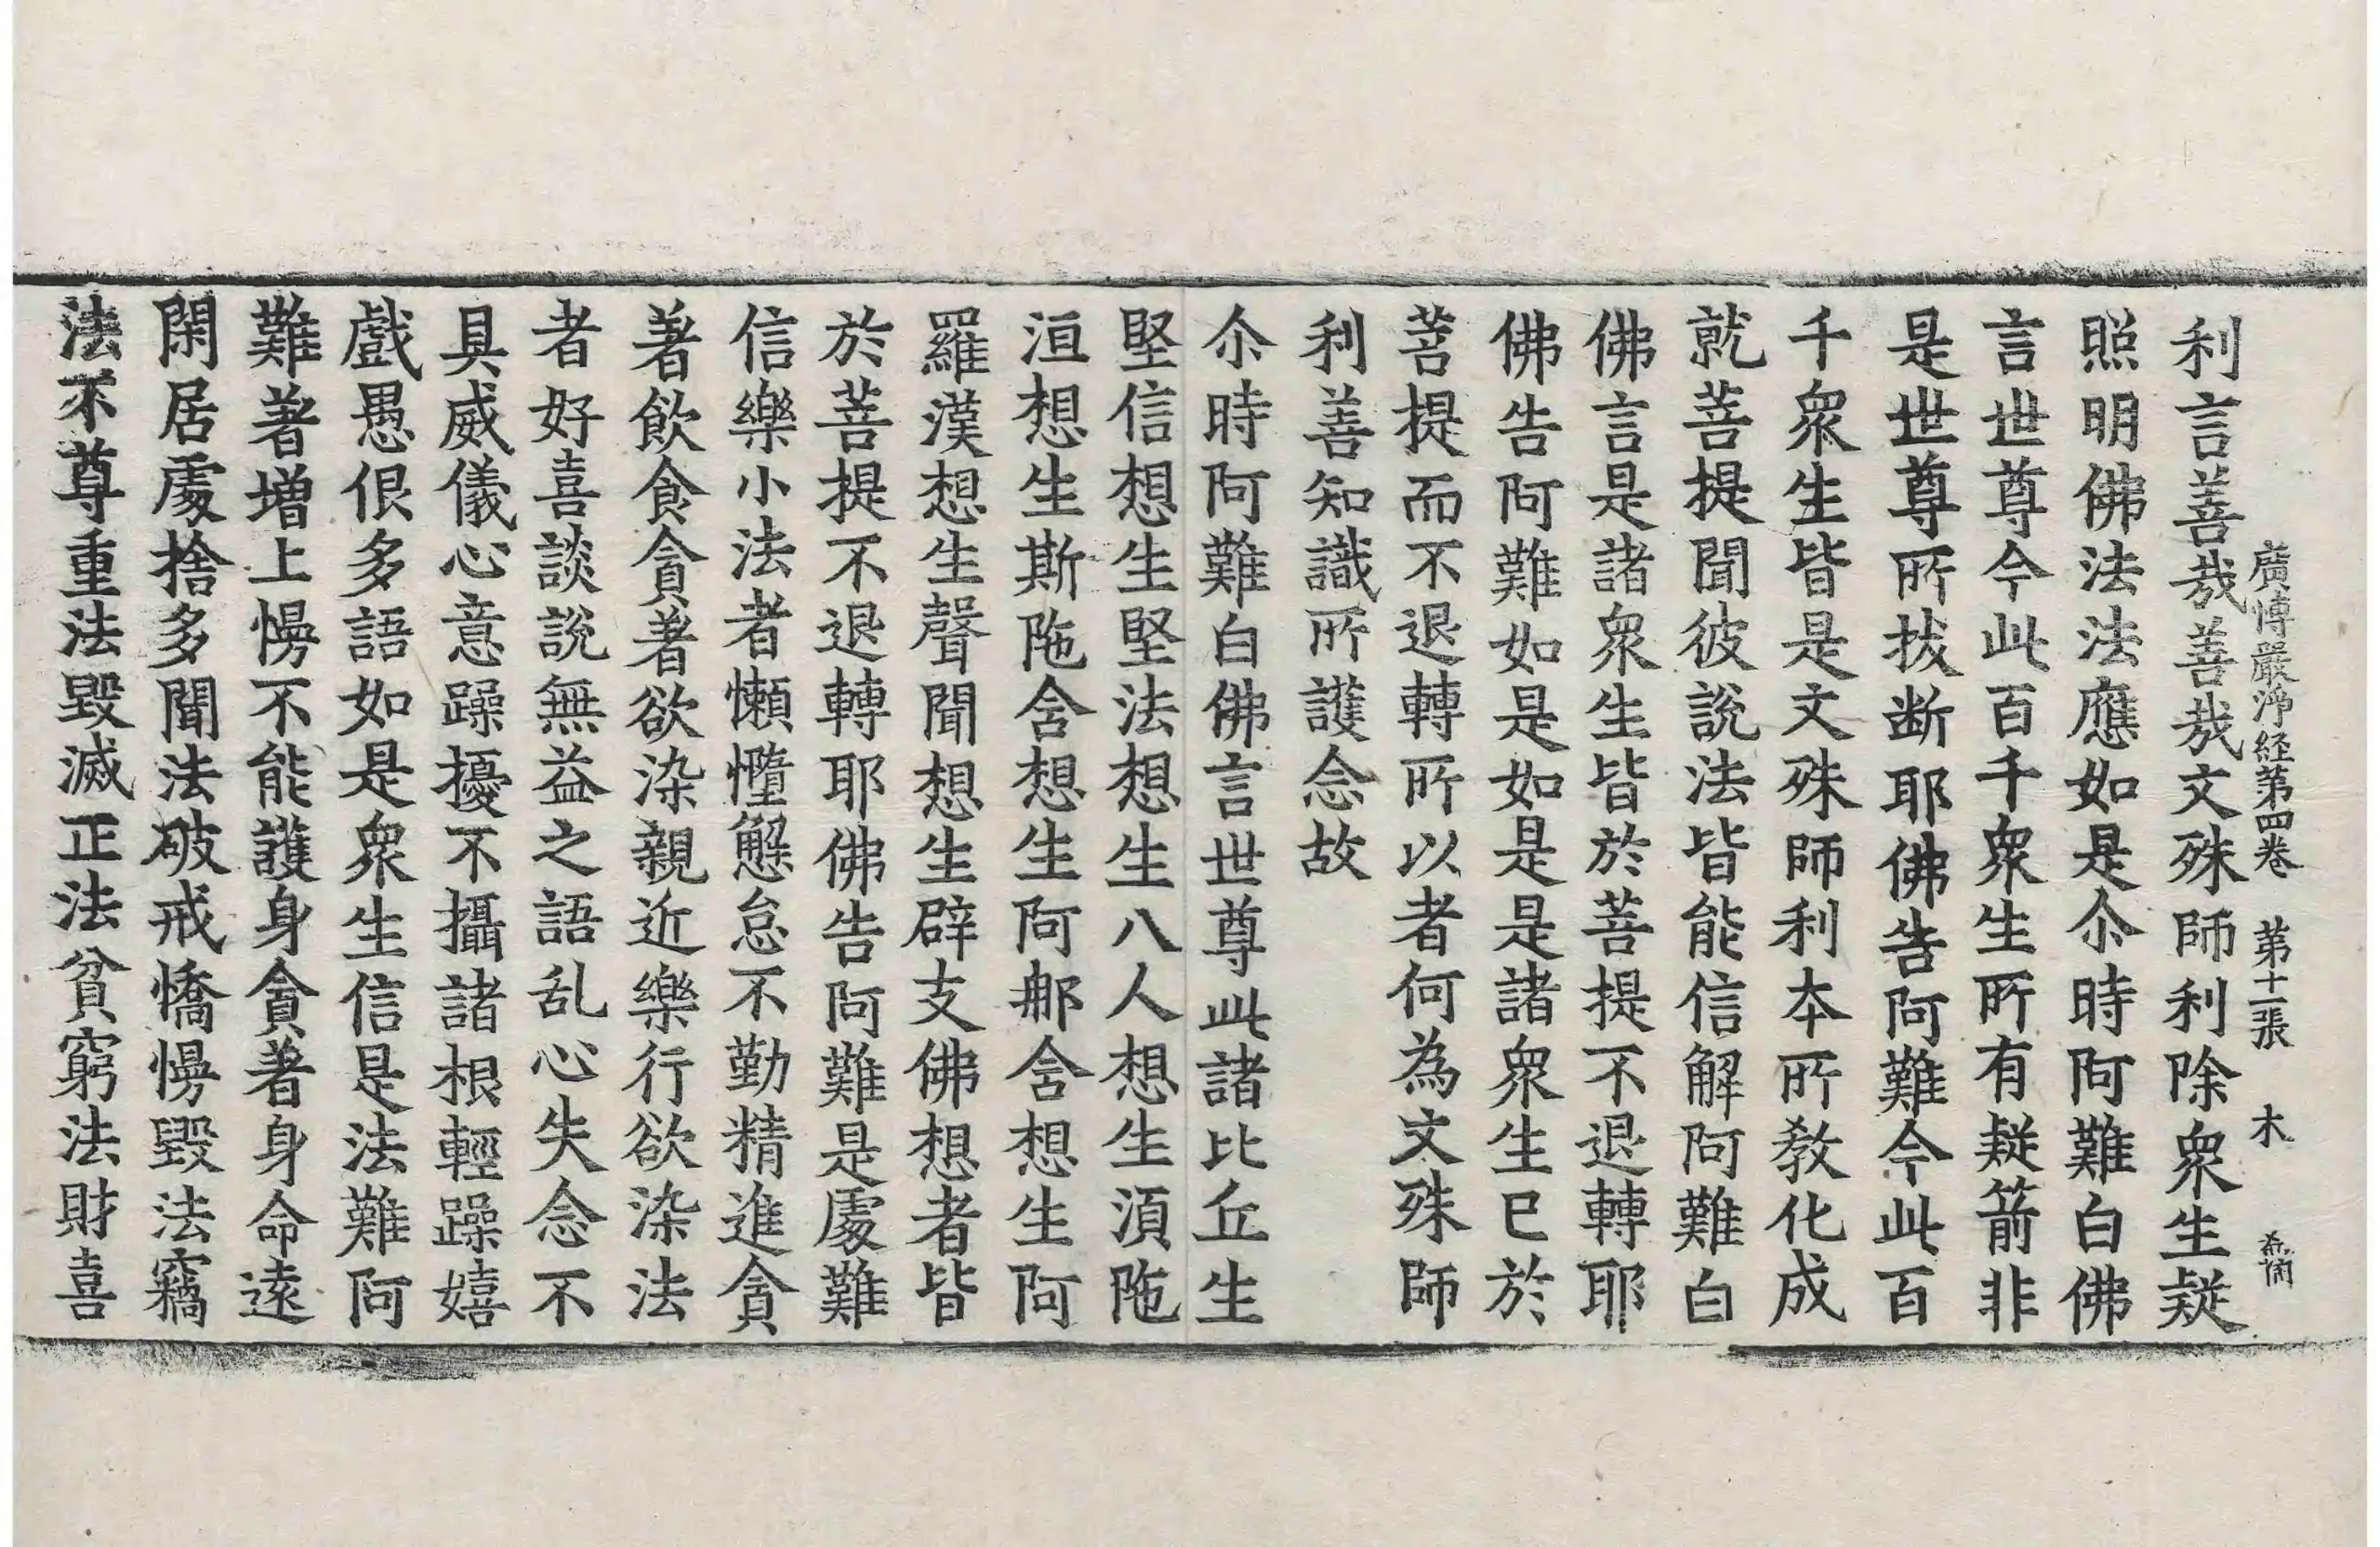 廣博嚴淨経第四卷 第十一張 木
利言善哉善哉文殊師利除衆生疑
照明佛法法應如是尒時阿難白佛
言世尊今此百千衆生所有疑箭非
是世尊所拔断耶佛告阿難今此百
千衆生皆是文殊師利本所教化成
就菩提聞彼說法皆能信解阿難白
佛言是諸衆生皆於菩提不退轉耶
佛告阿難如是如是是諸衆生已於
菩提而不退轉所以者何為文殊師
利善知識所護念故
尒時阿難白佛言世尊此諸比丘生
堅信想生堅法想生八人想生湏陁
洹想生斯陁含想生阿那含想生阿
羅漢想生聲聞想生辟支佛想者皆
於菩提不退轉耶佛告阿難是處難
信樂小法者懶憧懈怠不勤精進貪
著飲食貪著欲染親近樂行欲染法
者好喜談說無益之語乱心失念不
具威儀心意躁擾不攝諸根輕躁嬉
戲愚佷多語如是衆生信是法難阿
難著增上慢不能護身貪著身命遠
閑居處捨多聞法破戒憍慢毀法竊
法不尊重法毀滅正法貧窮法財喜